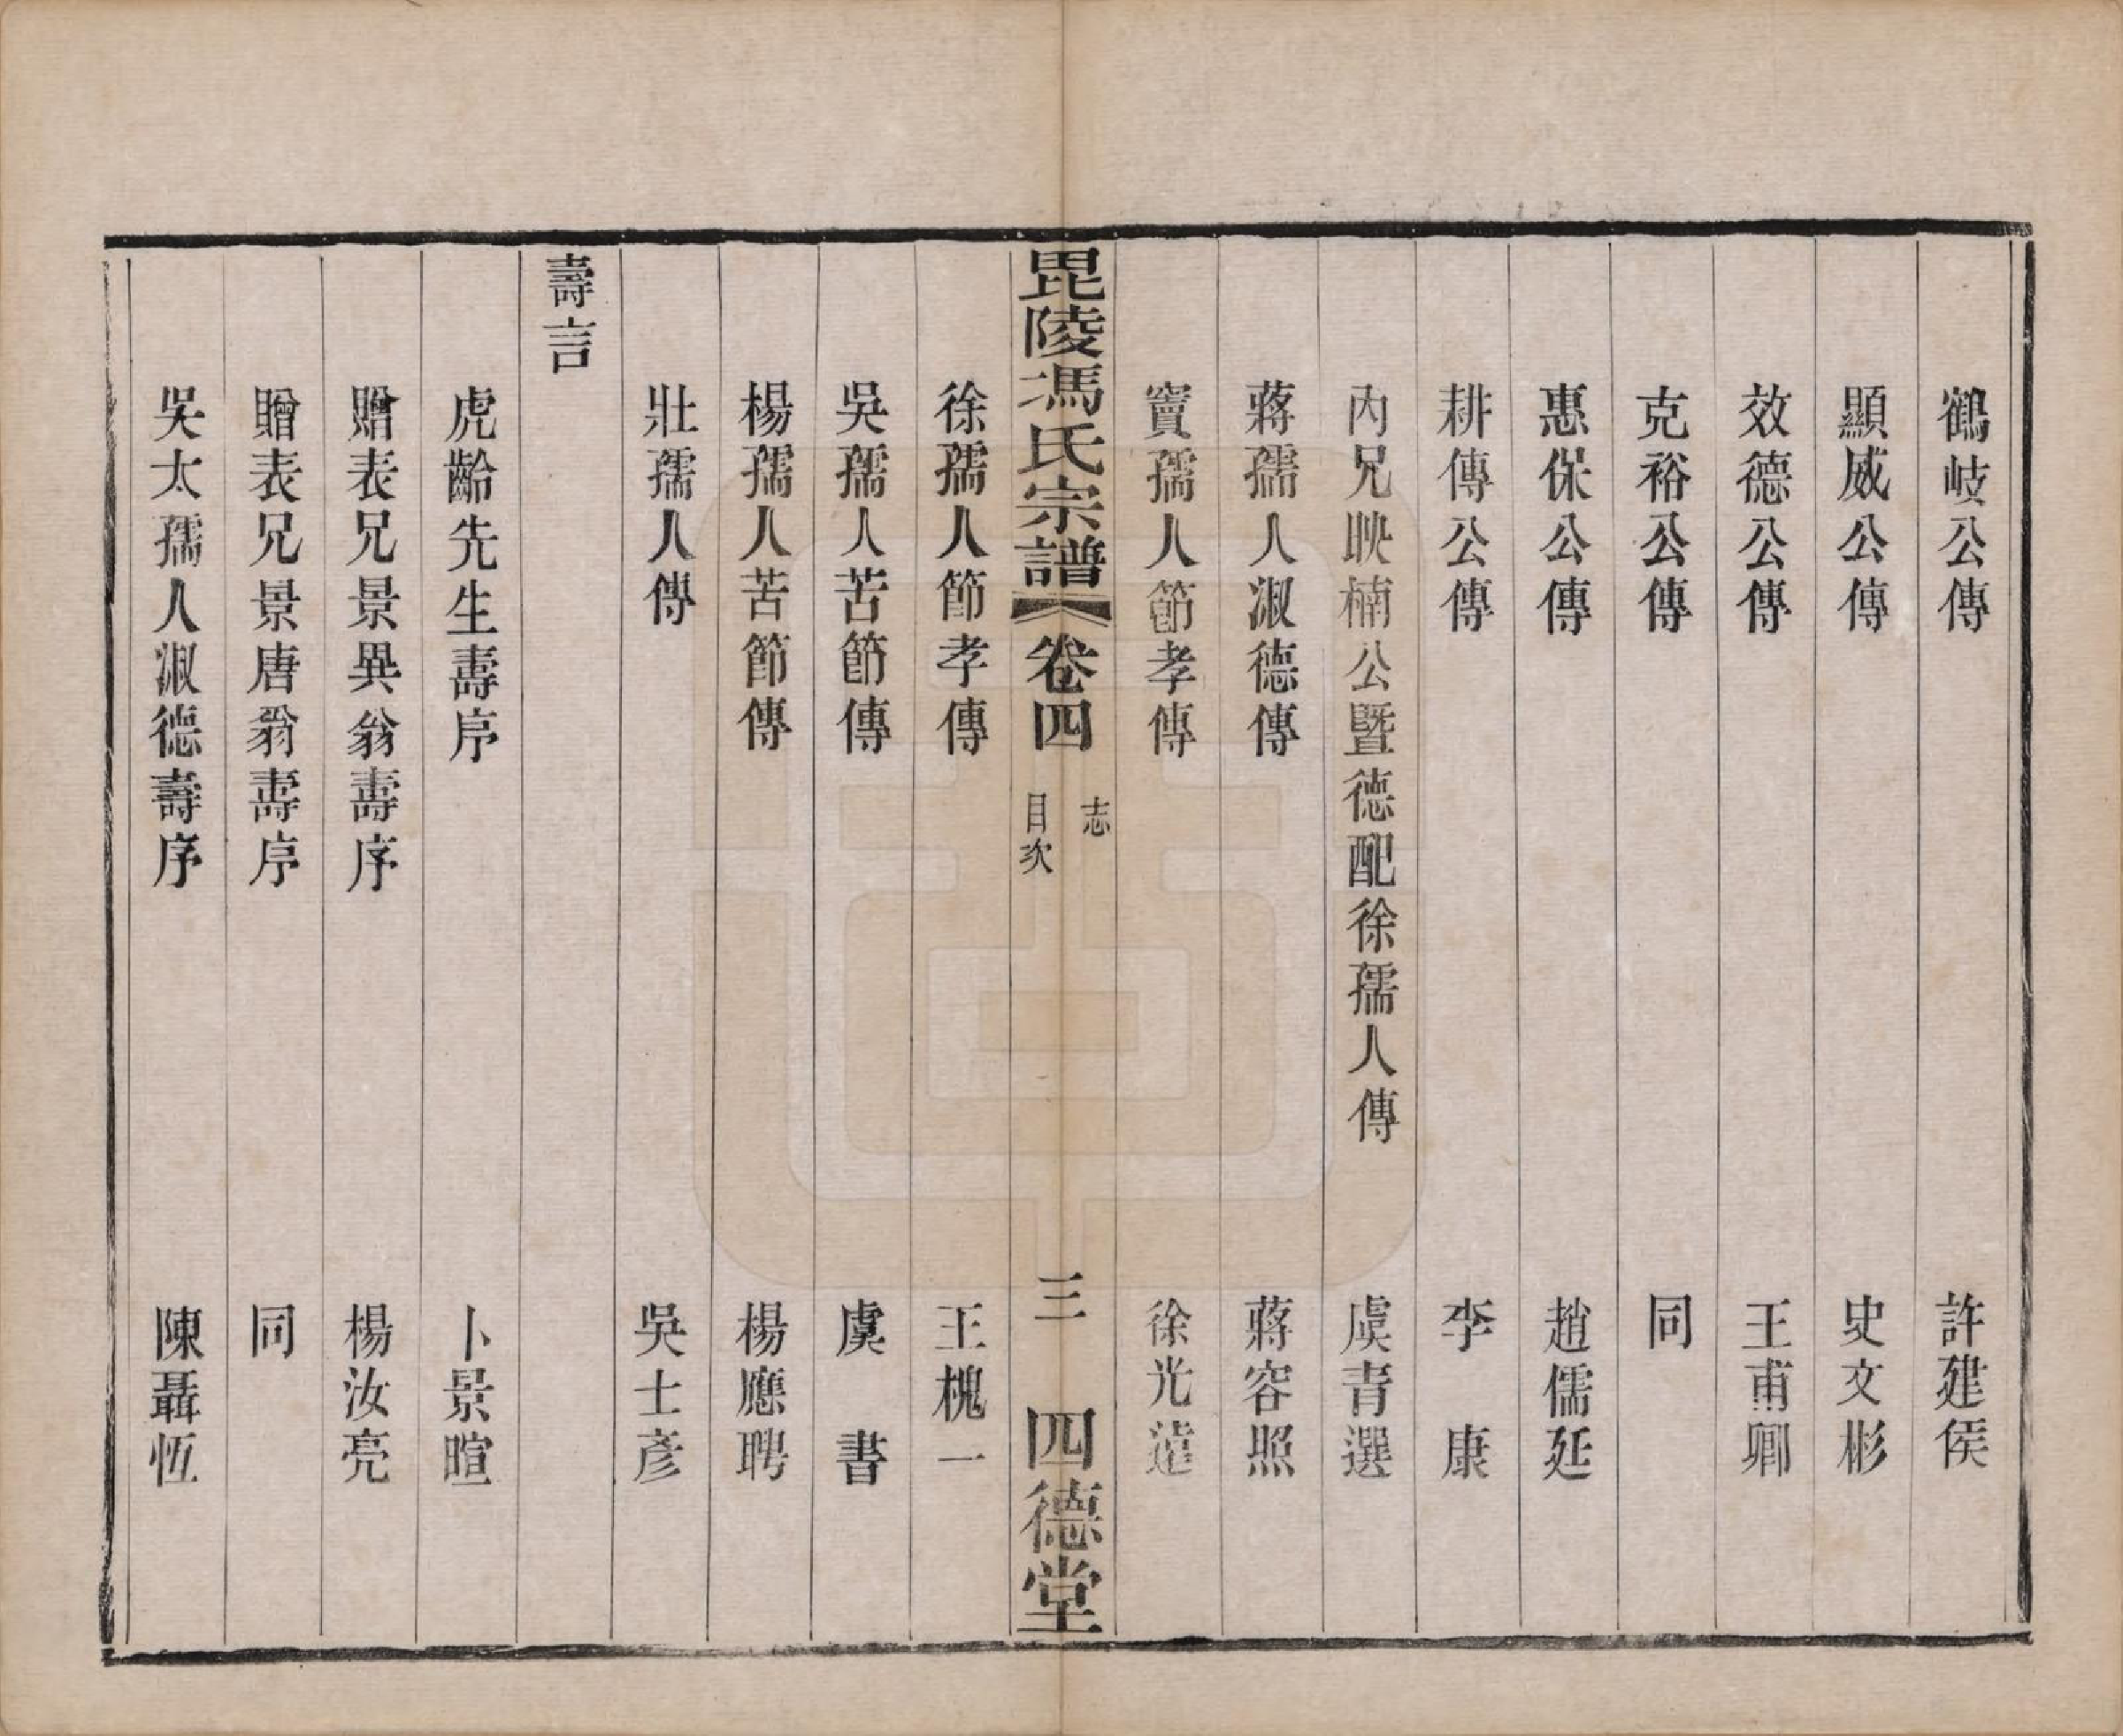 鶴岐公傳 許建侯
顯威公傳 史文彬
效德公傳 王甫卿
克裕公傳 同
惠保公傳 趙儒延
耕傳公傳 李康
內兄映楠公暨德配徐孺人傳 虞青選
蔣孺人淑德傳 蔣容照
竇孺人節孝傳 徐光遠
毘陵馮氏宗譜 卷四 志 目次 三 四德堂
徐孺人節孝傳 王槐一
吳孺人苦節傳 虞書
楊孺人苦節傳 楊應聘
壯孺人傳 吳士彥
壽言
虎齡先生壽序 卜景暄
贈表兄景異翁壽序 楊汝亮
贈表兄景唐翁壽序 同
吳太孺人淑德壽序 陳聶恆